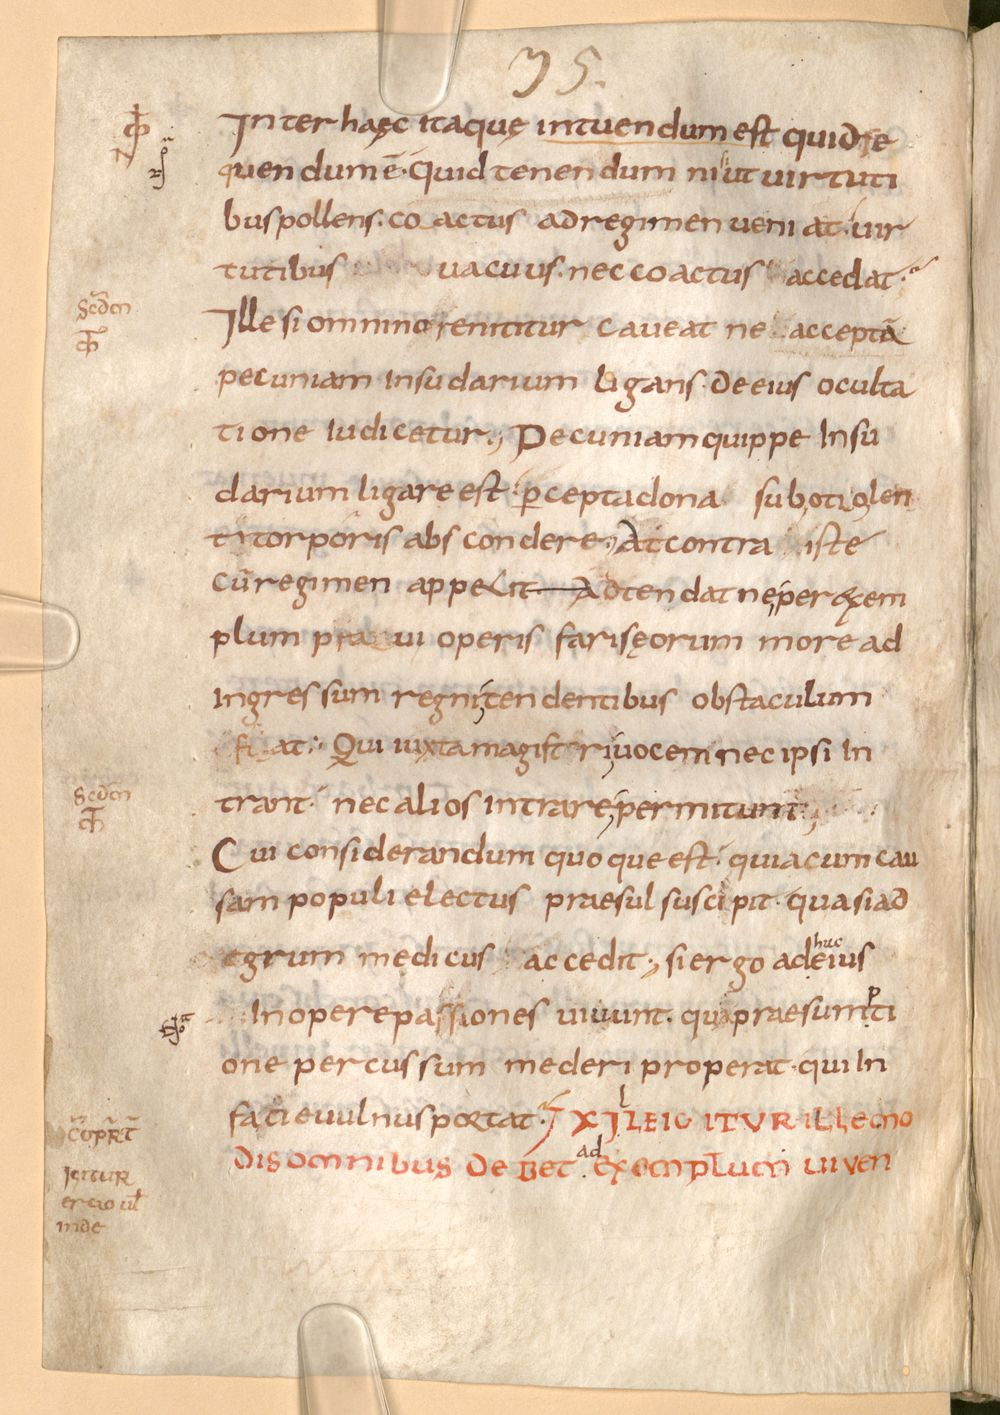 35.
Inter haęc itaque intuendum est quid se
quendum ē. Quid tenendum nisi ut uirtuti
bus pollens. coactus ad regimen ueniat. uir
tutibus uacuus. nec coactus accedat.
Scdm
Ille si omnino renititur caueat ne acceptā
pecuniam in sudarium ligans. de eius oculta
tione iudicetur; Pecuniam quippe in su
darium ligare est. ꝑcepta dona sub otio len
ti torporis abscondere. At contra iste
cū regimen appetit Adtendat ne per exem
plum praui operis farisęorum more ad
ingressum regni tendentibus obstaculum
fiat. Qui iuxta magistri uocem nec ipsi in
Scdm
trant. nec alios intrare permitunt;
Cui considerandum quoque est. quia cum cau
sam populi electus praesul suscipit. quasi ad
egrum medicus accedit; si ergo ad huc eius
in opere passiones uiuunt. qua praesumpti
one percussum mederi properat. qui in
facie uulnus portat. XI ILLE IGITUR ILLE mo
dis omnibus debet ad exemplum uiuen
igitur
inde